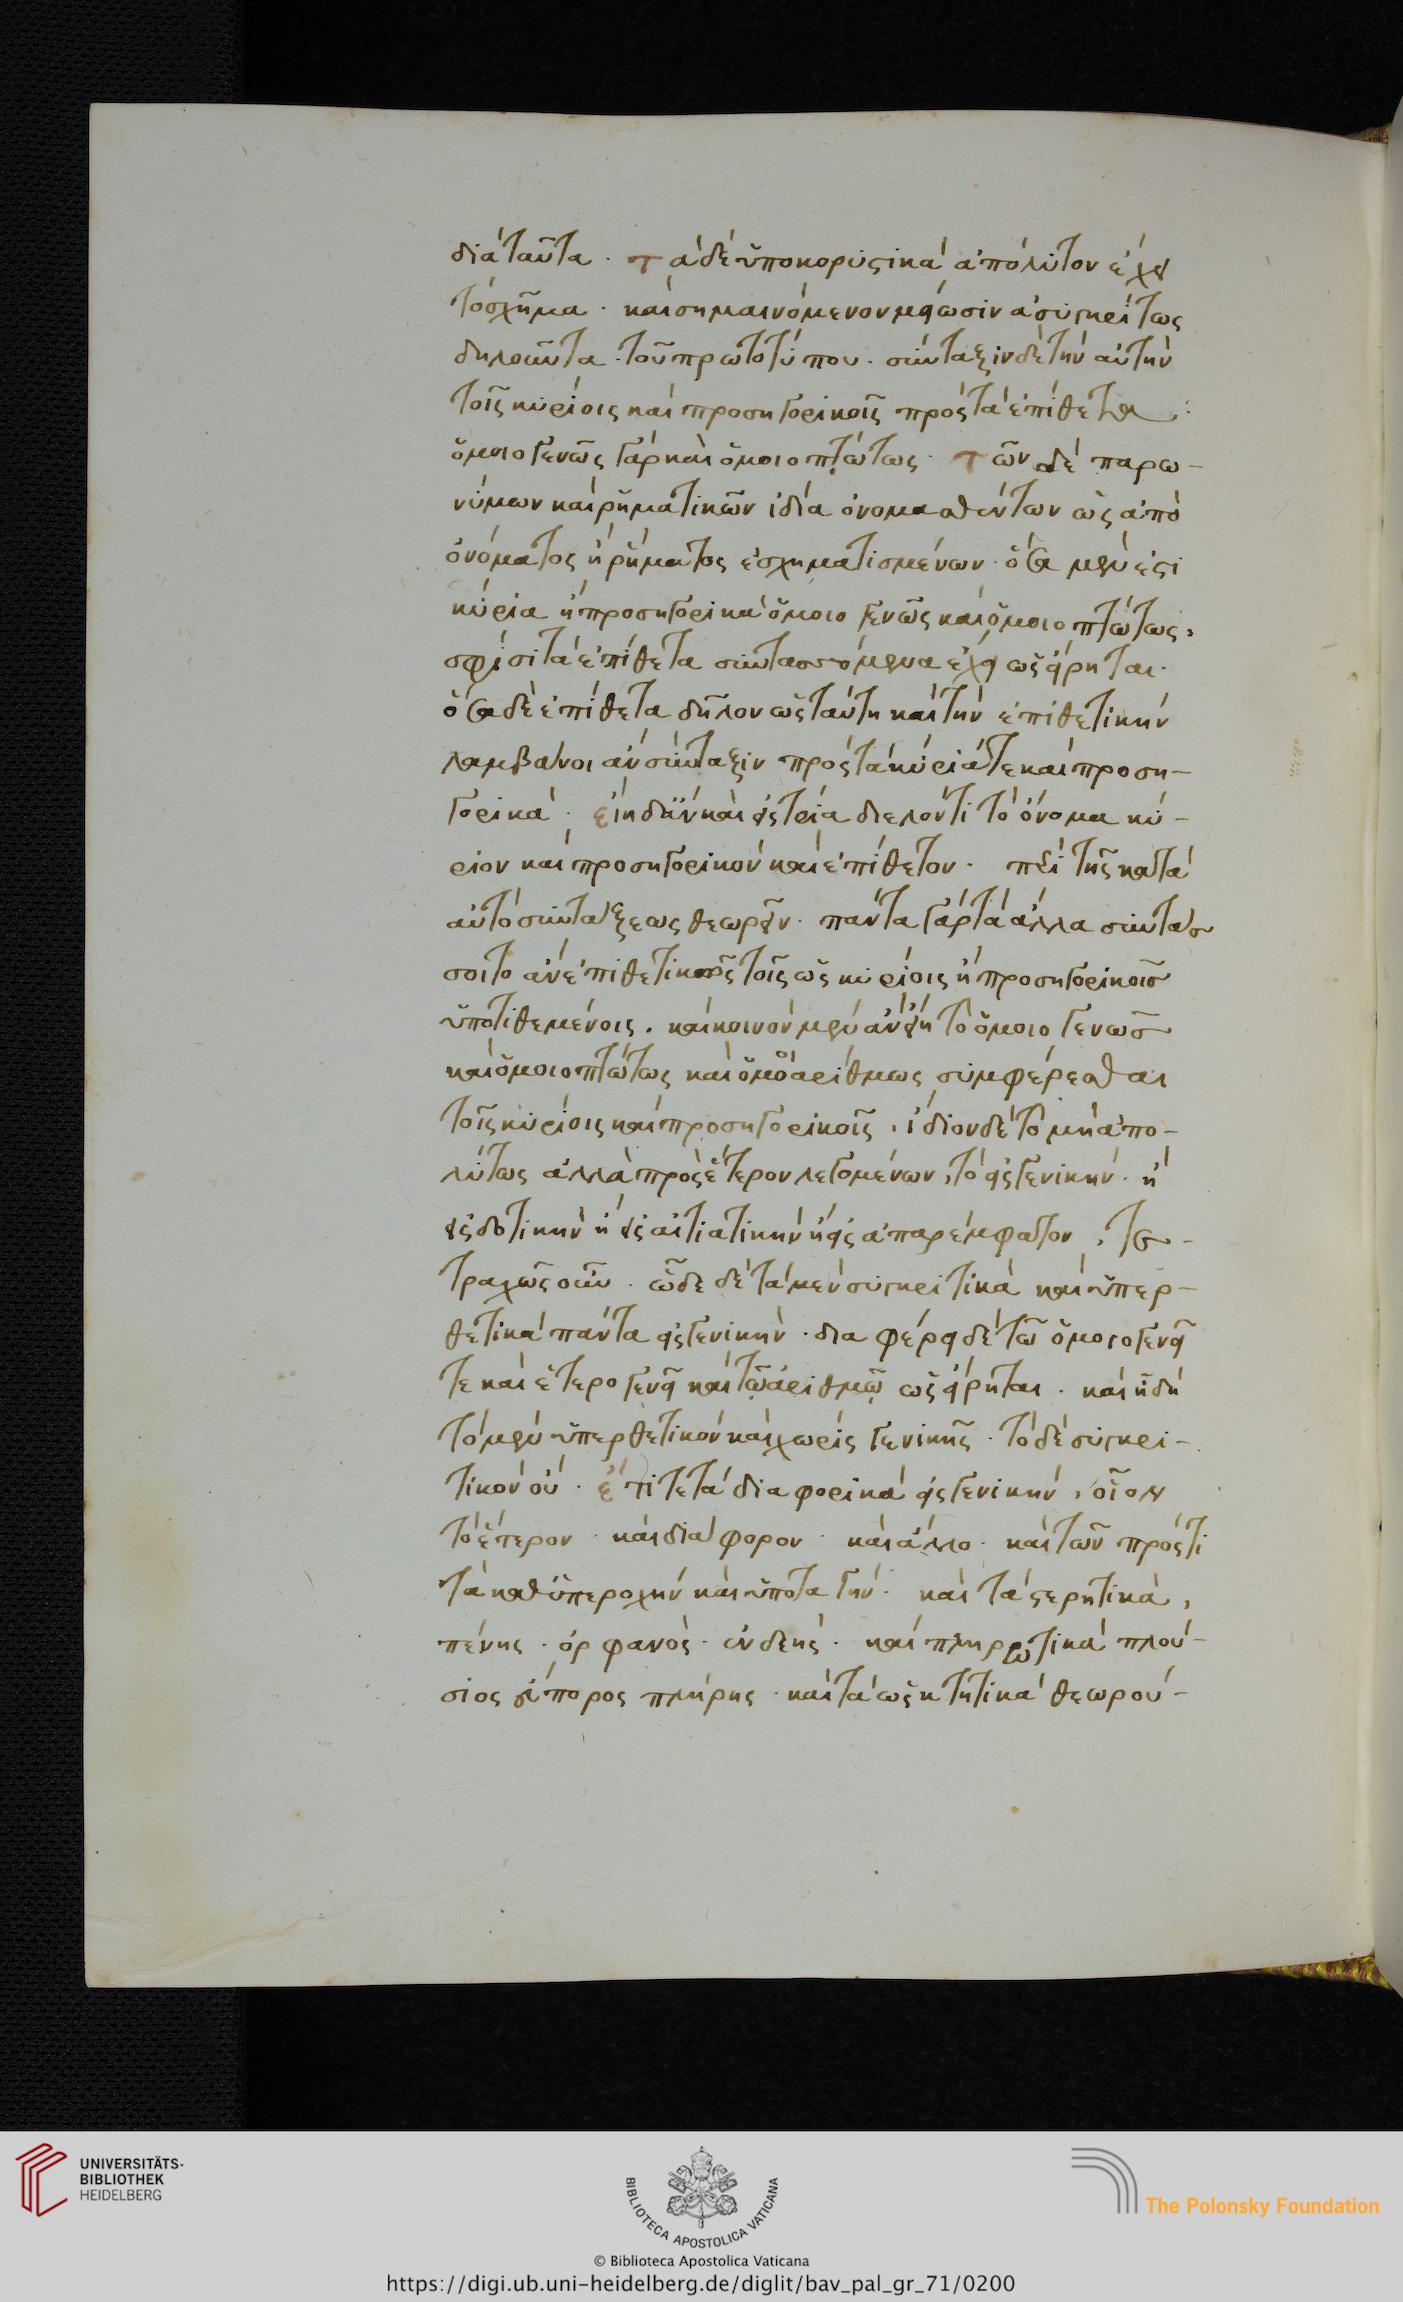 διὰ ταῦτα. τὰ δὲ ὑποκοριστικὰ ἀπόλυτον ἔχει
τὸ σχῆμα. καὶ σημαινόμενον μείωσιν ἀσυγκρίτως
δηλοῦντα τοῦ πρωτοτύπου. σύνταξιν δὲ τὴν αὐτὴν
τοῖς κυρίοις καὶ προσηγορικοῖς πρὸς τὰ ἐπίθετα.
ὁμοιογενῶς γὰρ καὶ ὁμοιοπτώτως. τῶν δὲ παρω-
νύμων καὶ ῥηματικῶν ἰδία ὀνομασθέντων ὡς ἀπὸ
ὀνόματος ἢ ῥήματος ἐσχηματισμένων. ὅσα μέν ἐστι
κύρια ἢ προσηγορικὰ ὁμοιογενῶς καὶ ὁμοιοπτώτως,
σφίσι τὰ ἐπίθετα συντασσόμενα ἔχει ὡς εἴρηται.
ὅσα δὲ ἐπίθετα δῆλον ὡς ταύτη καὶ τὴν ἐπιθετικὴν
λαμβάνοι ἂν σύνταξιν πρὸς τὰ κύριά τε καὶ προση-
γορικά. εἴη δ' ἂν καὶ εἰς τρία διελόντι τὸ ὄνομα κύ-
ριον καὶ προσηγορικὸν καὶ ἐπίθετον. περὶ τῆς κατὰ
αὐτὸ συντάξεως θεωρεῖν. πάντα γὰρ τὰ ἄλλα συντάσ
σοιτο ἂν ἐπιθετικῶς τοῖς ὡς κυρίοις ἢ προσηγορικοῖς
ὑποτιθεμένοις. καὶ κοινὸν μὲν ἂν εἴη τὸ ὁμοιογενῶς
καὶ ὁμοιοπτώτως καὶ ὁμοαρίθμως συμφέρεσθαι
τοῖς κυρίοις καὶ προσηγορικοῖς, ἴδιον δὲ τὸ μὴ ἀπο-
λύτως ἀλλὰ πρὸς ἕτερον λεγομένων, τὸ εἰς γενικήν. ἢ
εἰς δοτικὴν ἢ εἰς αἰτιατικὴν ἢ εἰς ἀπαρέμφατον, τε-
τραχῶς οὖν. ὧδε δὲ τὰ μὲν συγκριτικὰ καὶ ὑπερ-
θετικὰ πάντα εἰς γενικήν. διαφέρει δὲ τῶ ὁμοιογενεῖ
τε καὶ ἑτερογενεῖ καὶ τῷ ἀριθμῷ ὡς εἴρηται. καὶ ἤδη
τὸ μὲν ὑπερθετικὸν καὶ χωρὶς γενικῆς. τὸ δὲ συγκρι-
τικὸν οὐ. ἔτι τε τὰ διαφορικὰ εἰς γενικήν, οἷον
τὸ ἕτερον. καὶ διάφορον. καὶ ἄλλο. καὶ τῶν πρός τι
τὰ καθ' ὑπεροχὴν καὶ ὑποταγήν. καὶ τὰ στερητικά,
πένης. ὀρφανός. ἐνδεής. καὶ πληρωτικὰ πλού-
σιος εὔπορος πλήρης. καὶ τὰ ὡς κτητικὰ θεωρού-
UNIVERSITÄTS-
BIBLIOTHEK
HEIDELBERG
BIBLIOTECA APOSTOLICA VATICANA
The Polonsky Foundation
© Biblioteca Apostolica Vaticana
https://digi.ub.uni-heidelberg.de/diglit/bav_pal_gr_71/0200